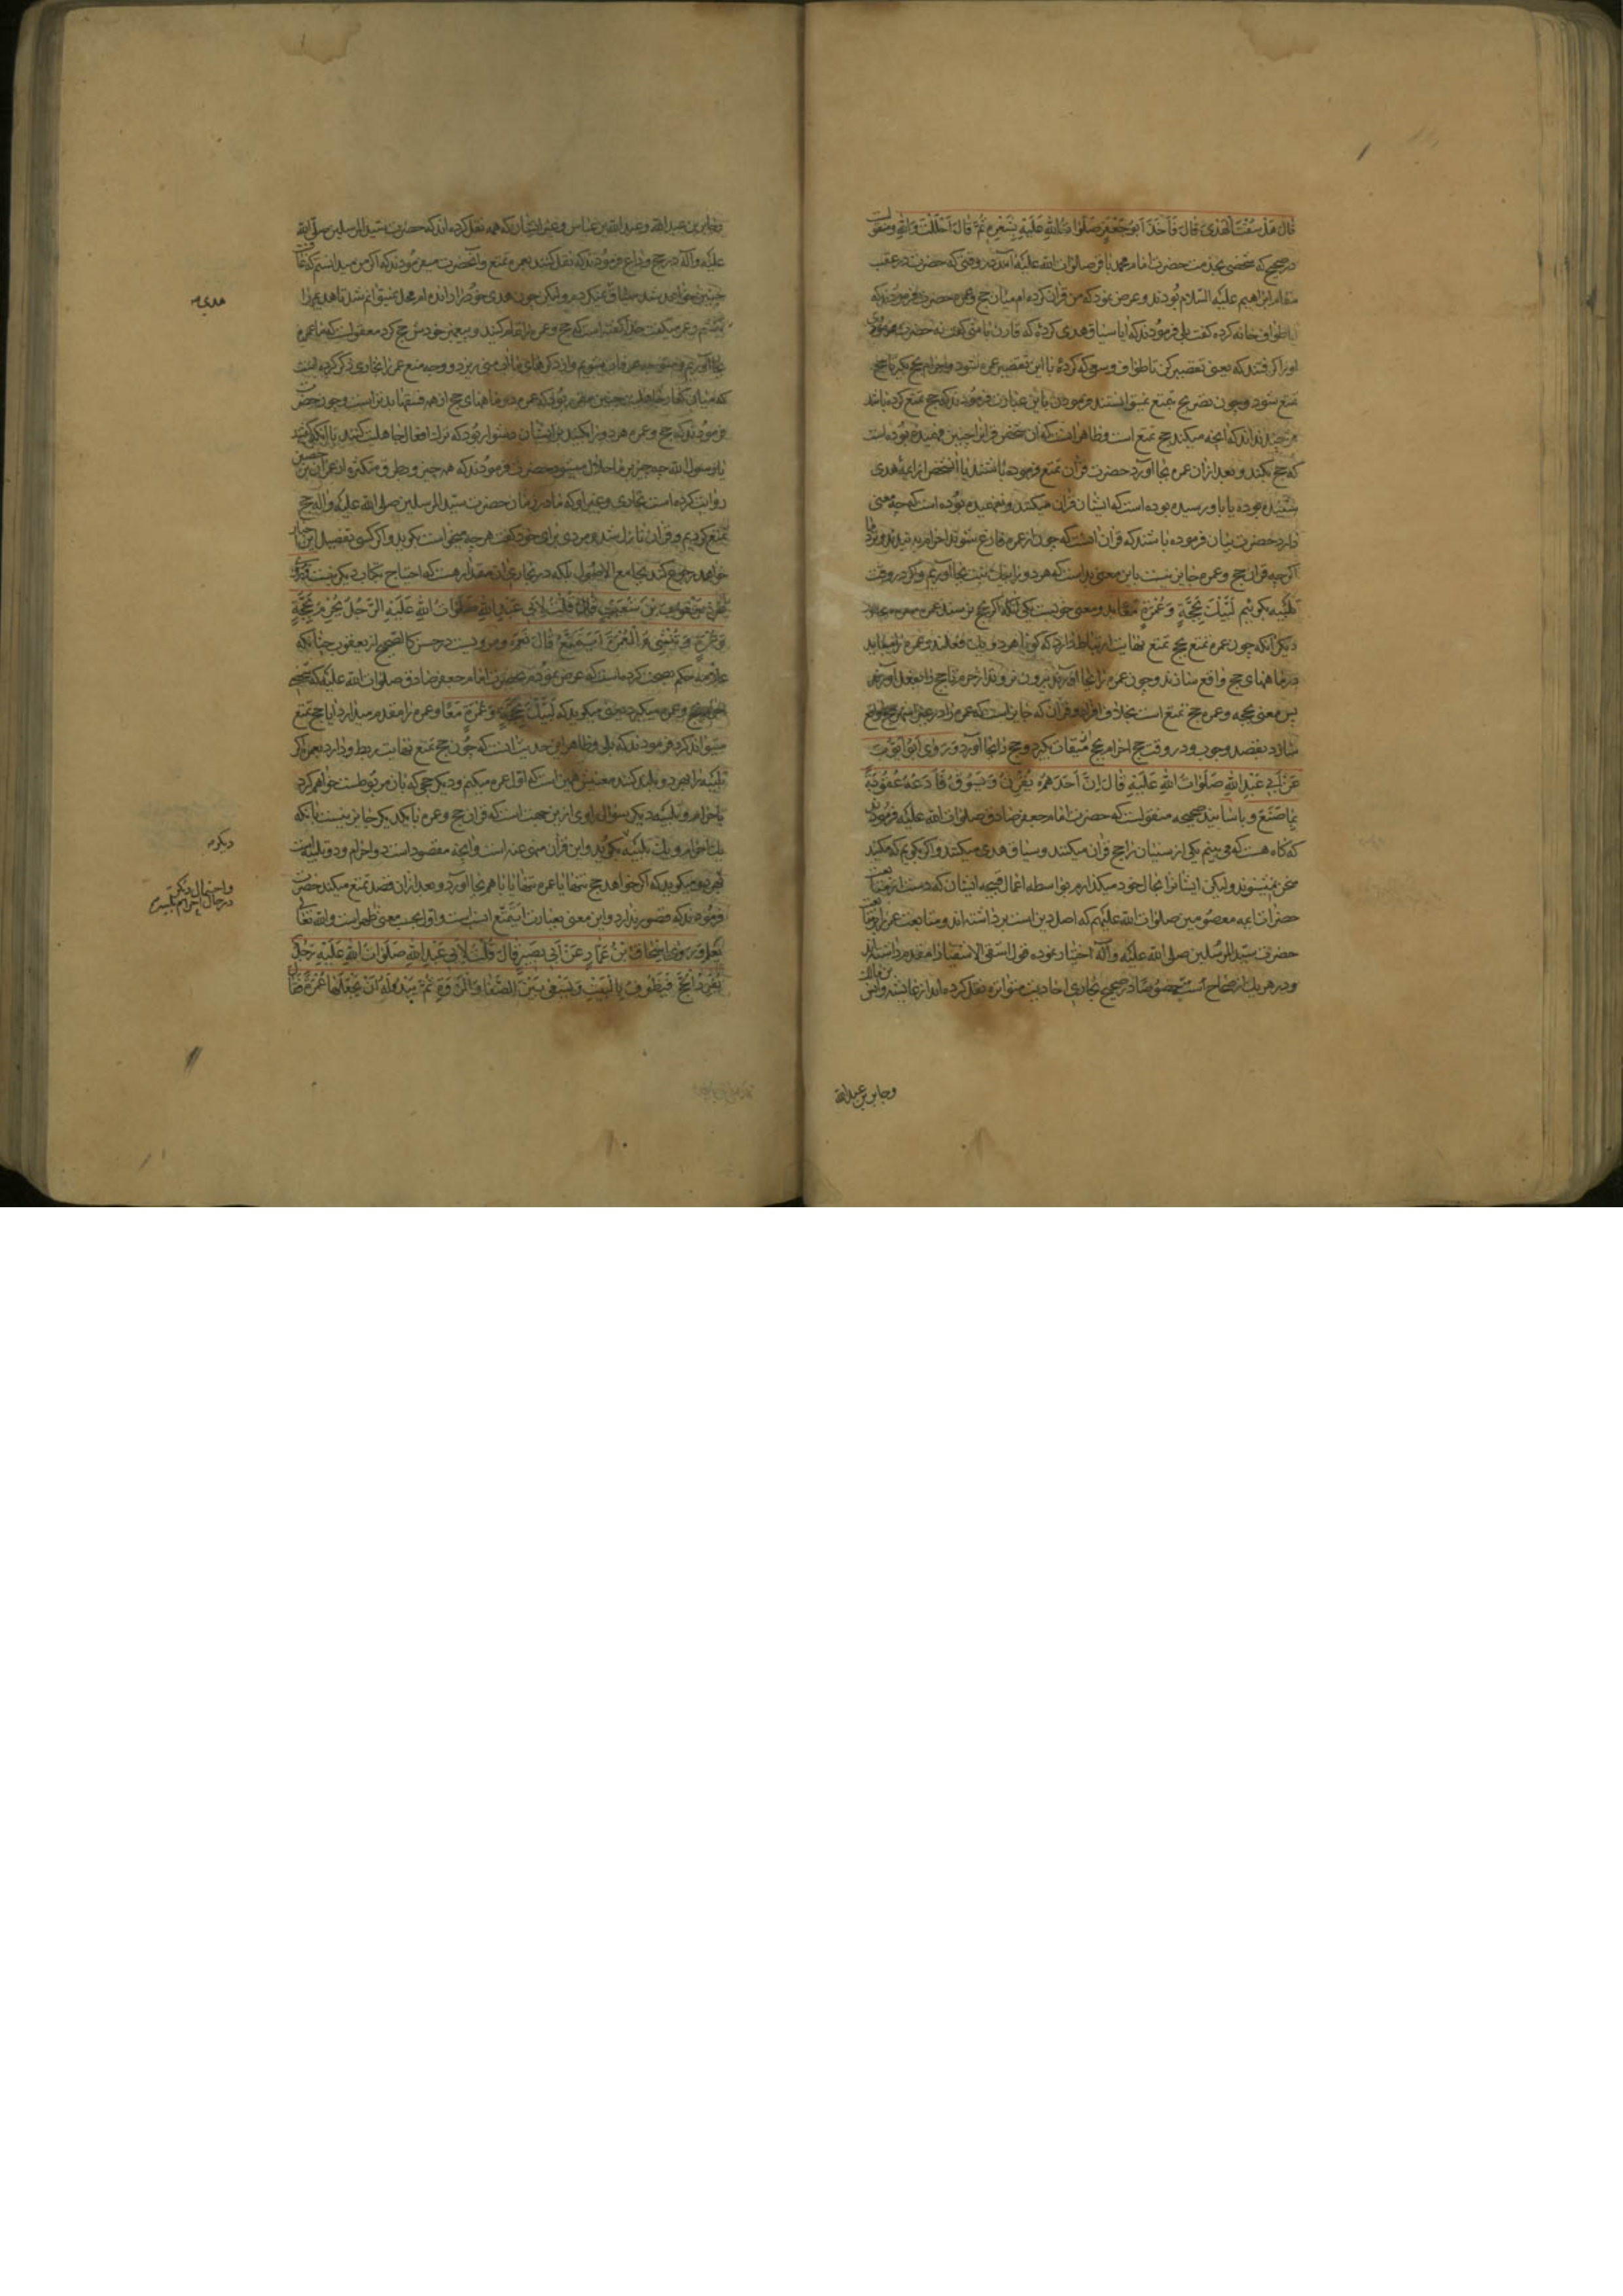 قال هل سقت الهدی قال لا قال فاخذ ابو جعفر صلوات الله علیه بشعره ثم قال احللت والله و منقولست
در صحیح که شخصی بخدمت حضرت امام محمد باقر صلوات الله علیه آمد در وقتی که حضرت در عقب
مقام ابراهیم علیه السلام بودند و عرض نمود که من قران کرده‌ام میان حج و عمره حضرت فرمودند که
ایا طواف خانه کرده گفت بلی فرمودند که ایا سیاق هدی کردهٔ که قارن با منی گفت نه حضرت موی
او را گرفتند که یعنی تقصیر کن تا طواف و سعی که کردهٔ با این تقصیر عمره شود و احرام بحج بگیر تا حج
تمتع شود و چون تصریح بتمتع نمیتوانستند فرمودن باین عبارت فرمودند که حج تمتع کرده باشد
هر چند نداند که آنچه میکند حج تمتع است و ظاهر آنست که آن شخص قران را چنین فهمیده بوده است
که حج بکند و بعد از آن عمره بجا آورد حضرت قران تمتع فرموده باشند یا آن شخص از ایمهٔ هدی
شنیده بوده یا باو رسیده بوده است که ایشان قران میکنند و نفهمیده بوده است که چه معنی
دارد حضرت بیان فرموده باشند که قران آنست که چون از عمره فارغ شوند احرام بحج بندند و نزد ما
اگر چه قران حج و عمره جایز نیست باین معنی بد است که هر دو را بیک نیت بجا آوریم و لکن در وقت
تلبیه بگوئیم لبیک بحجة و عمرة معا بد و معنی خوبست یکی آنکه اگر بحج نرسند عمره
دیگر آنکه چون عمره تمتع بحج تمتع نهایت ارتباط دارد که گویا هر دو یک فعلند و عمره را میباید
در ماههای حج واقع سازند و چون عمره را بجا آورند بیرون نروند از حرم تا حج را بفعل آورند
پس معنی بحجه و عمره حج تمتع است بخلاف افراد و قران که جایز است که عمره را در غیر اشهر حج واقع
سازد بقصد وجوب و در وقت حج احرام بحج از میقات بگیرد و حج را بجا آورد و روی ابو ایوب
عن ابی عبد الله صلوات الله علیه قال ان احدهم یقرن و یسوق فادعه عقوبة
بما صنع و باسانید صحیحه منقولست که حضرت امام جعفر صادق صلوات الله علیه فرمودند
که گاه هست که می‌بینم یکی از سنیان را حج قران میکنند و سیاق هدی میکنند و اگر بگویم که مکنید
سخن میشنوند و لیکن ایشان را بحال خود میگذارم بواسطه اعمال قبیحه ایشان که دست از متابعت
حضرات ایمه معصومین صلوات الله علیهم که اصل دین است برداشته‌اند و متابعت عمر را بر متابعت
حضرت سید المرسلین صلی الله علیه و آله اختیار نموده قول اشقی الاشقیا را مقدم داشته‌اند
و در هر یک از صحاح ستّ خصوصا در صحیح بخاری احادیث متواتره نقل کرده‌اند از عایشه و انس بن مالک
و جابر بن عبدالله
و جابر بن عبد الله و عبد الله بن عباس و غیر ایشان که همه نقل کرده‌اند که حضرت سید المرسلین صلی الله
علیه و آله در حج وداع فرمودند که نقل کنند بعمره تمتع و آنحضرت میفرمودند که اگر من میدانستم که عاقبت
چنین خواهد شد سیاق نمیکردم و لیکن چون هدی خود را رانده‌ام محل نمیتوانم شد تا هدیم را
بکشم و عمر میگفت خدا گفته است که حج و عمره را تمام کنید و پیغمبر خودش حج کرد معقولست که ما عمره
بجا آوریم و متوجه عرفات شویم و از ذکرهای ما آب منی بریزد و وجه منع عمر را بخاری ذکر کرده است
که میان کفار جاهلیت چنین مقرر بود که عمره در ماههای حج از همه فسقها بدتر است و چون حضرت
فرمودند که حج و عمره هر دو را بکنید بر ایشان دشوار بود که ترک افعال جاهلیت کنند با آنکه گفتند
یا رسول الله چه چیز بر ما حلال میشود حضرت فرمودند که همه چیز و بطرق متکثره از عمران بن حصین
روایت کرده است بخاری و غیر او که ما در زمان حضرت سید المرسلین صلی الله علیه و آله حج
تمتع کردیم و قرآن نازل شد و مردی برای خود گفت هر چه میخواست بگوید و اگر کسی تفصیل این اخبار
خواهد رجوع کند بجامع الاصول بلکه در بخاری آن مقدار هست که احتیاج بکتاب دیگر نیست و روی
عن یعقوب بن شعیب قال قلت لابی عبد الله صلوات الله علیه الرجل یحرم بحجة
و عمرة و ینشی العمرة ایتمتع قال نعم و مرویست در حسن کالصحیح از یعقوب چنانکه
علامه حکم بصحت کرده است که عرض نمودم بحضرت امام جعفر صادق صلوات الله علیه که شخصی
احرام بحج و عمره میگیرد یعنی میگوید که لبیک بحجة و عمرة معا و عمره را مقدم میدارد ایا حج تمتع
میتواند کرد فرمودند که بلی و ظاهر این حدیث آنست که چون حج تمتع نهایت ربط دارد بعمره اگر
تلبیه را بهر دو بلند کنند معنیش همین است که اول عمره میکنم و دیگر حجی که بآن مربوطست خواهم کرد
باحرام و تلبیه دیگر سؤال راوی از این جهت است که قران حج و عمره با یکدیگر جایز نیست بآنکه
بیک احرام و یک تلبیه بگویند و این قران منهی عنه است و آنچه مقصود است دو احرام و دو تلبیه است
بهر دو میگوید که اگر خواهد حج تنها یا عمره تنها یا با هم بجا آورد و بعد از آن قصد تمتع میکند حضرت
فرمودند که قصوری ندارد و این معنی بعبارت ایتمتع انسب است و اول بحسب معنی ظاهر است و الله تعالی
یعلم و روی اسحاق بن عمار عن ابی بصیر قال قلت لابی عبد الله صلوات الله علیه رجل
یفرد الحج فیطوف بالبیت و یسعی بین الصفا و المروة ثم یبدو له ان یجعلها عمرة فقال
هدی
دیگر
و احتمال دیگر